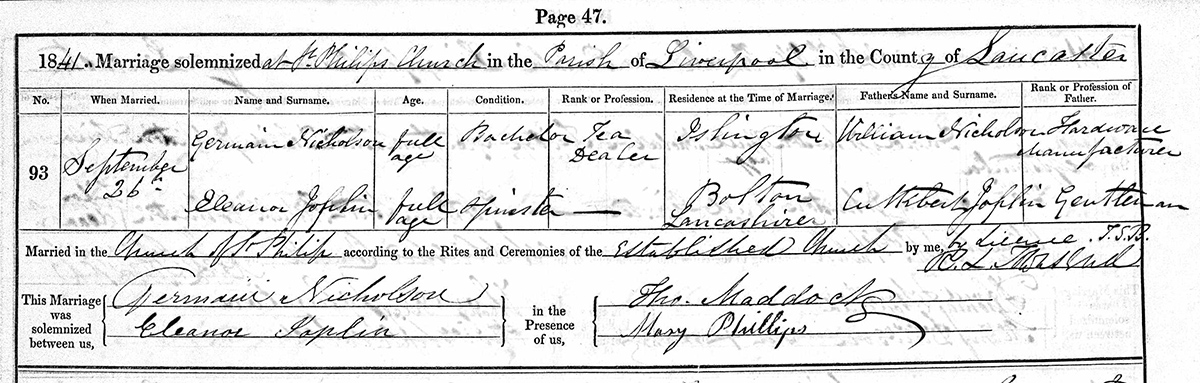 Page 47.
1841. Marriage solemnized at St Philips Church in the Parish of Liverpool in the County of Lancaster
No. When Married. Name and Surname. Age. Condition. Rank or Profession. Residence at the Time of Marriage. Father's Name and Surname. Rank or Profession of Father.
93 September 26 Germain Nicholson full age Bachelor Tea Dealer Islington William Nicholson Hardware Manufacturer
Eleanor Joplin full age Spinster — Bolton Lancashire Cuthbert Joplin Gentleman
Married in the Church of St Philip according to the Rites and Ceremonies of the Established Church by me, by Licence T.S.B.
This Marriage was solemnized between us, Germain Nicholson Eleanor Joplin in the Presence of us, Tho. Maddock Mary Phillips